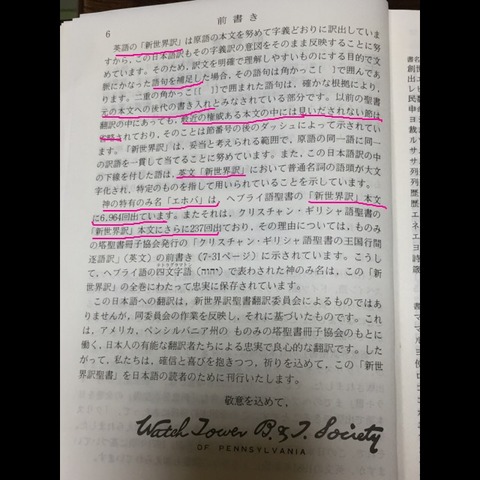 前書き
6
英語の「新世界訳」は原語の本文を努めて字義どおりに訳出していま
すから，この日本語訳もその字義訳の意図をそのまま反映することに努
めています。そのため，訳文を明確で理解しやすいものにする目的で文
脈にかなった語句を補足した場合，その語句は角かっこ〔 〕で囲んであ
ります。二重の角かっこ〚 〛で囲まれた語句は，確かな根拠により，
元の本文への後代の書き入れとみなされている部分です。以前の聖書
翻訳の中にあっても，最近の権威ある本文の中には見いだされない節は
省略されており，そのことは節番号の後のダッシュによって示されてい
ます。「新世界訳」は，妥当と考えられる範囲で，原語の同一語に同一
の訳語を一貫して当てることに努めています。また，この日本語訳の中
の下線を付した語は，英文「新世界訳」において普通名詞の語頭が大文
字化され，特定のものを指して用いられていることを示しています。
神の特有のみ名「エホバ」は，ヘブライ語聖書の「新世界訳」本文
に6,964回出ています。またそれは，クリスチャン・ギリシャ語聖書の
「新世界訳」本文にさらに237回出ており，その理由については，もの
みの塔聖書冊子協会発行の「クリスチャン・ギリシャ語聖書の王国行間
逐語訳」（英文）の前書き（7-31ページ）に示されています。こうし
て，ヘブライ語の四文字語（יהוה）で表わされた神のみ名は，この「新
世界訳」の全巻にわたって忠実に保存されています。
この日本語への翻訳は，新世界訳聖書翻訳委員会によるものではあ
りませんが，同委員会の作業を反映し，それに基づいたものです。これ
は，アメリカ，ペンシルバニア州の ものみの塔聖書冊子協会のもとに
働く，日本人の有能な翻訳者たちによる忠実で良心的な翻訳です。した
がって，私たちは，確信と喜びを抱きつつ，祈りを込めて，この「新世
界訳聖書」を日本語の読者のために刊行いたします。
敬意を込めて，
Watch Tower B. & T. Society
OF PENNSYLVANIA